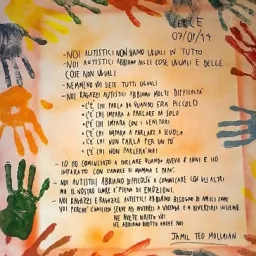 LECCE
07/01/17
-NOI AUTISTICI NON SIAMO UGUALI IN TUTTO
-NOI AUTISTICI ABBIAMO DELLE COSE UGUALI E DELLE
COSE NON UGUALI
-NEMMENO VOI SIETE TUTTI UGUALI
-NOI RAGAZZI AUTISTICI ABBIAMO MOLTE DIFFICOLTÀ
C'È CHI PARLA DA QUANDO ERA PICCOLO
C'È CHI IMPARA A PARLARE DA SOLO
C'È CHI IMPARA CON I GENITORI
C'È CHI IMPARA A PARLARE A SCUOLA
C'È CHI NON PARLA PER UN PO'
C'È CHI NON PARLERÀ MAI
- IO HO COMINCIATO A PARLARE QUANDO AVEVO 8 ANNI E HO
IMPARATO CON MAMMA E PAPÀ
- NOI AUTISTICI ABBIAMO DIFFICOLTÀ A COMUNICARE CON GLI ALTRI
MA IL NOSTRO CUORE È PIENO DI EMOZIONI.
- NOI RAGAZZI E RAGAZZE AUTISTICI ABBIAMO BISOGNO DI AMICI COME
VOI PERCHÉ CI AIUTATI A VIVERE E A DIVERTIRCI INSIEME
NE AVETE DIRITTO VOI
NE ABBIAMO DIRITTO ANCHE NOI
JAMIL TED